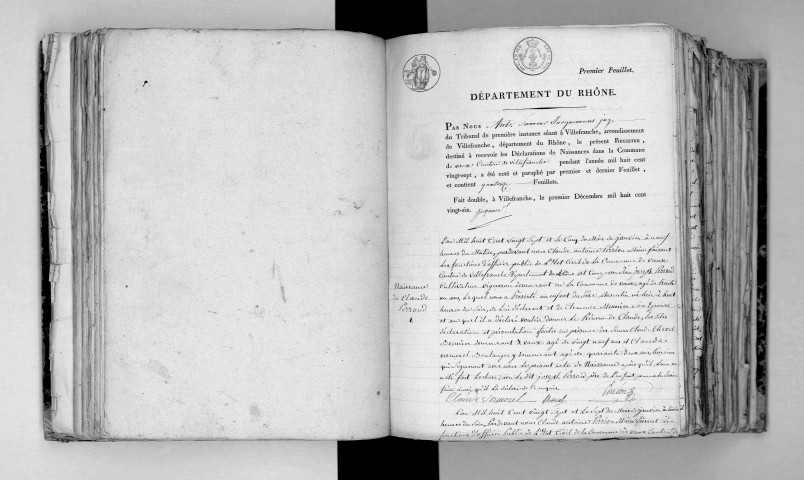 Premier Feuillet.
DÉPARTEMENT DU RHÔNE.
PAR NOUS juge
du Tribunal de première instance séant à Villefranche, arrondissement
de Villefranche, département du Rhône, le présent REGISTRE,
destiné à recevoir les Déclarations de Naissances dans la Commune
de vaux Canton de villefranche pendant l'année mil huit cent
vingt-sept, a été coté et paraphé par premier et dernier Feuillet,
et contient quatorze Feuillets.
Fait double, à Villefranche, le premier Décembre mil huit cent
vingt-six.
L'an Mil huit Cent vingt Sept et le Cinq du Mois de janvier à neuf
heures du Matin, pardevant nous Claude antoine Maire faisant
Les fonctions d'officier public de L'Etat Civil de La Commune de vaux
Canton de villefranche Département du Rhône est Comparu joseph
Cultivateur vigneron demeurant en La Commune de vaux, agé de trente
un ans Lequel nous a Présenté un enfant du Sexe Masculin né hier à huit
heures du Soir, de Lui déclarant et de Son Epouse
et au quel il a déclaré vouloir donner Le Prénom de Claude, Les dite
déclaration et présentation faites en présence des Sieurs Claude
demeurant à vaux agé de vingt neuf ans et Claude
Boulanger y demeurant agé de quarante deux ans
qui Signeront avec nous Le présent acte de Naissance après qu'il Leur en
a été fait Lecture, non Le dit joseph père de L'enfant pour ne Savoir
faire ainsi qu'il L'a déclaré de ce requis
Naissance
de Claude
1
Claude
L'an Mil huit Cent vingt Sept et Le Sept du Mois de janvier à
heures du Soir, Pardevant nous Claude antoine Maire faisant Les
fonctions d'officier Public de L'Etat Civil de La Commune de vaux Canton de